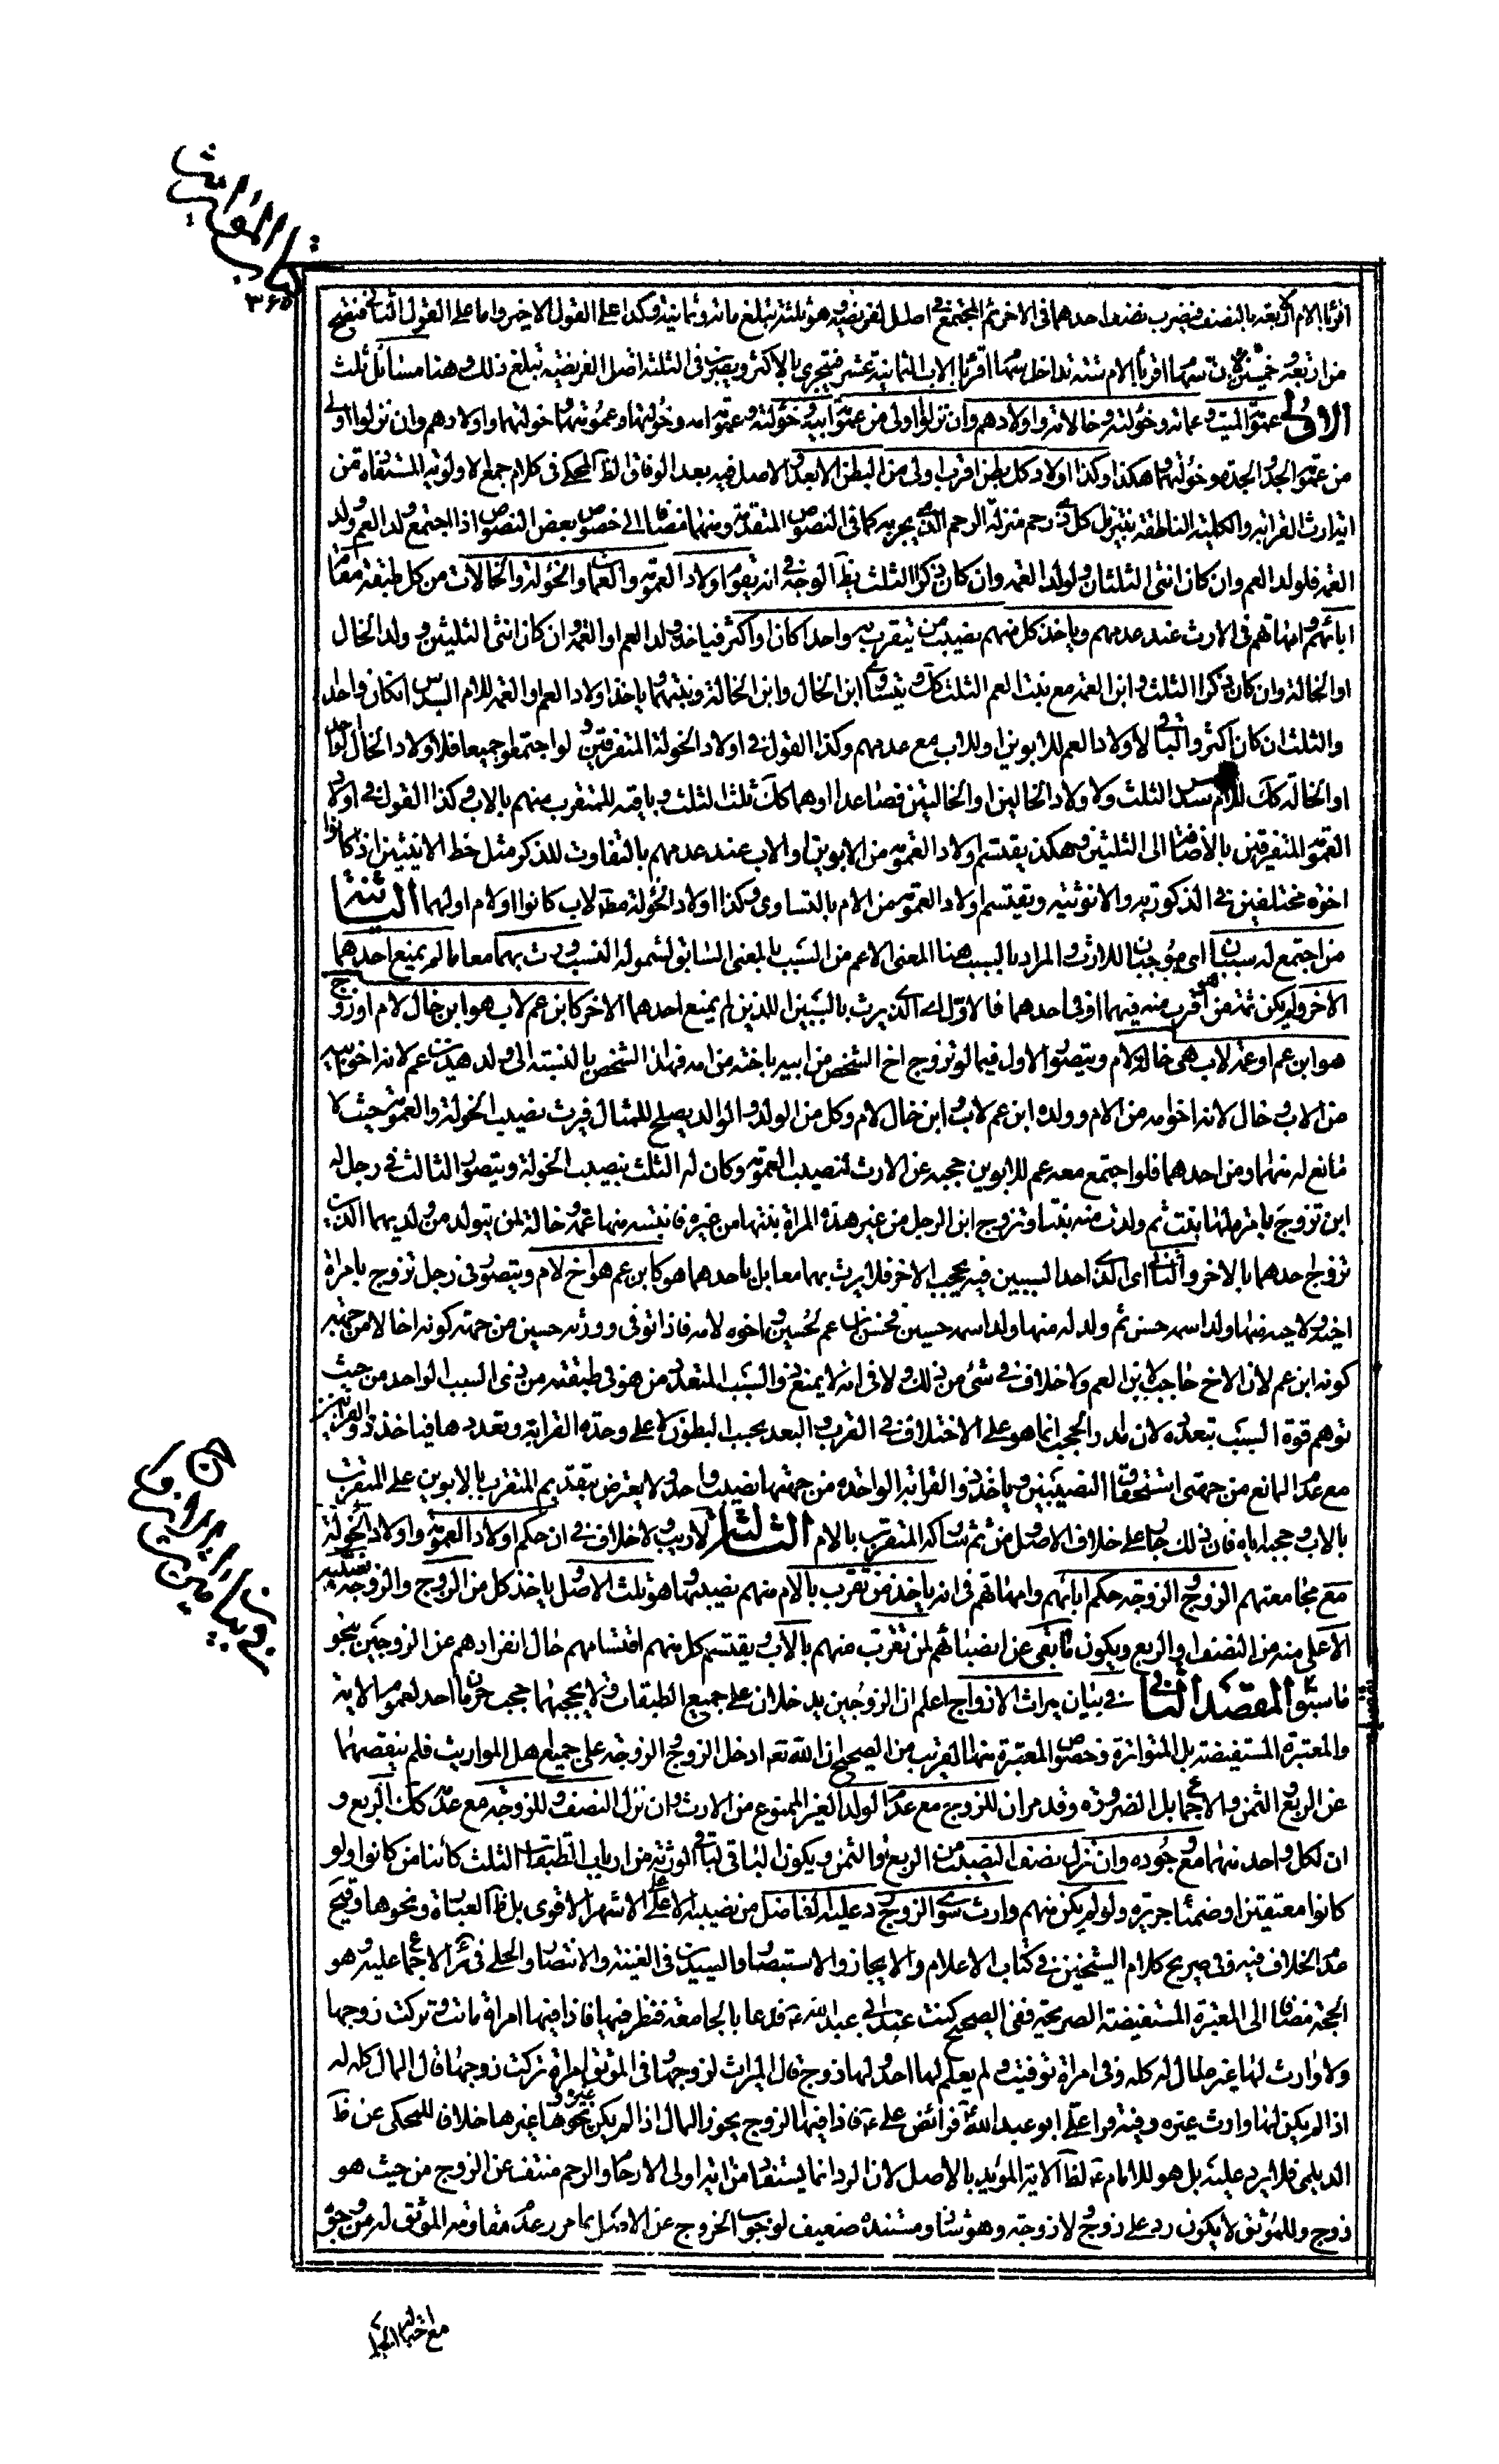 كتاب المواريث
٣۶۵
اقرباء الام الاربعة بالنصف فيضرب نصف احدهما فى الاخر ثم المجتمع فى اصل الفريضة وهو ثلثة تبلغ مائة وثمانية وكذا على القول الاخير واما على القول الثانى فتصح
من اربعة وخمسين لان سهام اقرباء الام ستة تداخل سهام اقرباء الاب الثمانية عشر فيجتزى بالاكثر ويضرب فى الثلثة اصل الفريضة تبلغ ذلك وهنا مسائل ثلث
الاولى عمومة الميت وعماته وخؤلته وخالاته واولادهم وان نزلوا اولى من عمومة ابيه وخؤلته وعمومة امه وخؤلتها وعمومتها وخولتهما واولادهم وان نزلوا اولى
من عمومة الجد والجدة وخؤلتهما وهكذا وكذا اولاد كل بطن اقرب اولى من البطن الابعد والاصل فيه بعد الوفاق الظ المحكى فى كلام جمع الاولوية المستفادة من
اية ارث القرابة والكلية الناطقة بتنزيل كل ذى رحم منزلة الرحم الذى يجر به كما فى النصوص المتقدمة ومنها مضافا الى خصوص بعض النصوص اذا اجتمع ولد العم وولد
العمة فلولد العم وان كان انثى الثلثان ولولد العمة وان كان ذكرا الثلث يظ الوجه فى انه يقوم اولاد العمومة والعمات والخؤلة والخالات من كل طبقة مقام
ابائهم وامهاتهم فى الارث عند عدمهم وياخذ كل منهم نصيب من يتقرب به واحدا كان او اكثر فياخذ ولد العم او العمة وان كان انثى الثلثين وولد الخال
او الخالة وان كان ذكرا الثلث وابن العمة مع بنت العم الثلث كك ويتساوى ابن الخال وابن الخالة وبنتهما وياخذ اولاد العم او العمة للام السدس ان كان واحدا
والثلث ان كان اكثر والباقى لاولاد العم للابوين او للاب مع عدمهم وكذا القول فى اولاد الخولة المتفرقين ولو اجتمعوا جميعا فلاولاد الخال الواحد
او الخالة كك للام سدس الثلث ولاولاد الخالين او الخالتين فصاعدا او هما كك ثلث الثلث وباقيه للمتقرب منهم بالاب وكذا القول فى اولاد
العمومة المتفرقين بالاضافة الى الثلثين وهكذا يقتسم اولاد العمومة من الابوين او الاب عند عدمهم بالتفاوت للذكر مثل حظ الانثيين اذا كانوا
اخوة مختلفين فى الذكورية والانوثية ويقتسم اولاد العمومة من الام بالتساوى وكذا اولاد الخؤلة مط لاب كانوا او لام او لهما الثانية
من اجتمع له سببان اى موجبان للارث والمراد بالسبب هنا المعنى الاعم من السبب بالمعنى السابق لشموله النسب ورث بهما معا ما لم يمنع احدهما
الاخر ولم يكن ثمة من هو اقرب منه فيهما او فى احدهما فالاول اى الذى يرث بالسببين اللذين لم يمنع احدهما الاخر كابن عم لاب هو ابن خال لام او زوج
هو ابن عم او عمة لاب هى خالة لام ويتصور الاول فيما لو تزوج اخ الشخص من ابيه باخته من امه فهذا الشخص بالنسبة الى ولد هذين عم لانه اخو ابيه
من الاب وخال لانه اخو امه من الام وولده ابن عم لاب وابن خال لام وكل من الولد والوالد يصلح للمثال فيرث نصيب الخولة والعمومة حيث لا
مانع له منهما ومن احدهما فلو اجتمع معه عم للابوين حجبه عن الارث لنصيب العمومة وكان له الثلث بنصيب الخولة ويتصور الثالث فى رجل له
ابن تزوج بامرءة لها بنت ثم ولدت منه بنتا وتزوج ابن الرجل من غير هذه المراة بنتها من غيره فابنته منها عمة وخالة لمن يتولد من ولديهما الذين
تزوج احدهما بالاخر والثانى اى الذى احد السببين فيه يحجب الاخر فلا يرث بهما معا بل باحدهما هو كابن عم هو اخ لام ويتصور فى رجل تزوج بامراة
اخيه ولاخيه منها ولد اسمه حسن ثم ولد له منها ولد اسمه حسين فحسن ابن عم لحسين واخوه لامه فاذا توفى وورثه حسين من جهة كونه اخا لا من جهة
كونه ابن عم لان الاخ حاجب لابن العم ولا خلاف فى شئ من ذلك ولا فى انه لا يمنع ذو السبب المتعدد من هو فى طبقته من ذى السبب الواحد من حيث
توهم قوة السبب بتعدده لان مدار الحجب انما هو على الاختلاف فى القرب والبعد بحسب البطون لا على وحدة القرابة وتعددها فياخذ ذو القرابتين
مع عدم المانع من جهتى استحقاقه النصيبين وياخذ ذو القرابة الواحدة من جهتها نصيب واحد ولا يعترض بتقديم المتقرب بالابوين على المتقرب
بالاب وحجبه اياه فان ذلك جاء على خلاف الاصل ومن ثم شاركه المتقرب بالام الثالثة لا ريب ولا خلاف فى ان حكم اولاد العمومة واولاد الخؤلة
مع مجامعتهم الزوج والزوجة حكم ابائهم وامهاتهم فى انه ياخذ من تقرب بالام منهم نصيبه وهو ثلث الاصل ياخذ كل من الزوج والزوجة نصيبه
الاعلى منه من النصف والربع ويكون ما بقى عن انصبائهم لمن تقرب منهم بالاب ويقتسم كل منهم اقتسامهم حال انفرادهم عن الزوجين بنحو
ما سبق المقصد الثانى فى بيان ميراث الازواج اعلم ان الزوجين يدخلان على جميع الطبقات ولا يحجبهما حجب حرمان احد لعموم الاية
والمعتبرة المستفيضة بل المتواترة وخصوص المعتبرة منها القريب من الصحيح ان الله تعم ادخل الزوج والزوجة على جميع اهل المواريث فلم ينقصهما
عن الربع والثمن والاجماع بل الضرورة وقد مر ان للزوج مع عدم الولد الغير الممنوع من الارث وان نزل النصف وللزوجة مع عدمه كك الربع و
ان لكل واحد منهما مع وجوده وان نزل نصف النصيب من الربع والثمن ويكون الباقى لباقى الورثة من ارباب الطبقات الثلث كائنا من كانوا ولو
كانوا معتقين او ضمناء جريرة ولو لم يكن منهم وارث سوى الزوج رد عليه الفاضل من نصيبه الاعلى على الاشهر الاقوى بل ظ العبارة ونحوها وقبح
عدم الخلاف فيه وفى صريح كلام الشيخين فى كتاب الاعلام والايجاز والاستبصار والسيدين فى الغنية والانتصار والحلى فى ئر الاجماع عليه وهو
الحجة مضافا الى المعتبرة المستفيضة الصريحة ففى الصحيح كنت عند ابى عبد الله عه فدعا بالجامعة فنظر فيها فاذا فيها امراة ماتت وتركت زوجها
ولا وارث لها غيره المال له كله وفى امراة توفيت ولم يعلم لها احد ولها زوج قال الميراث لزوجها وفى الموثق امراة تركت زوجها قال المال كله له
اذا لم يكن لها وارث غيره وفيه قرا على ابو عبد الله عه فرائض على عه فاذا فيها الزوج يحوز المال اذا لم يكن غيره ونحوها غيرها خلافا للمحكى عن ظ
الديلمى فلا يرد عليه بل هو للامام عه لظ الاية المؤيد بالاصل لان الرد انما يستفاد من اية اولى الارحام والرحم منتف عن الزوج من حيث هو
زوج وللموثق لا يكون رد على زوج ولا زوجة وهو شاذ ومستنده ضعيف لوجوب الخروج عن الاصل بما مر وعدم مقاومة الموثق له من وجوه
مع اختلا